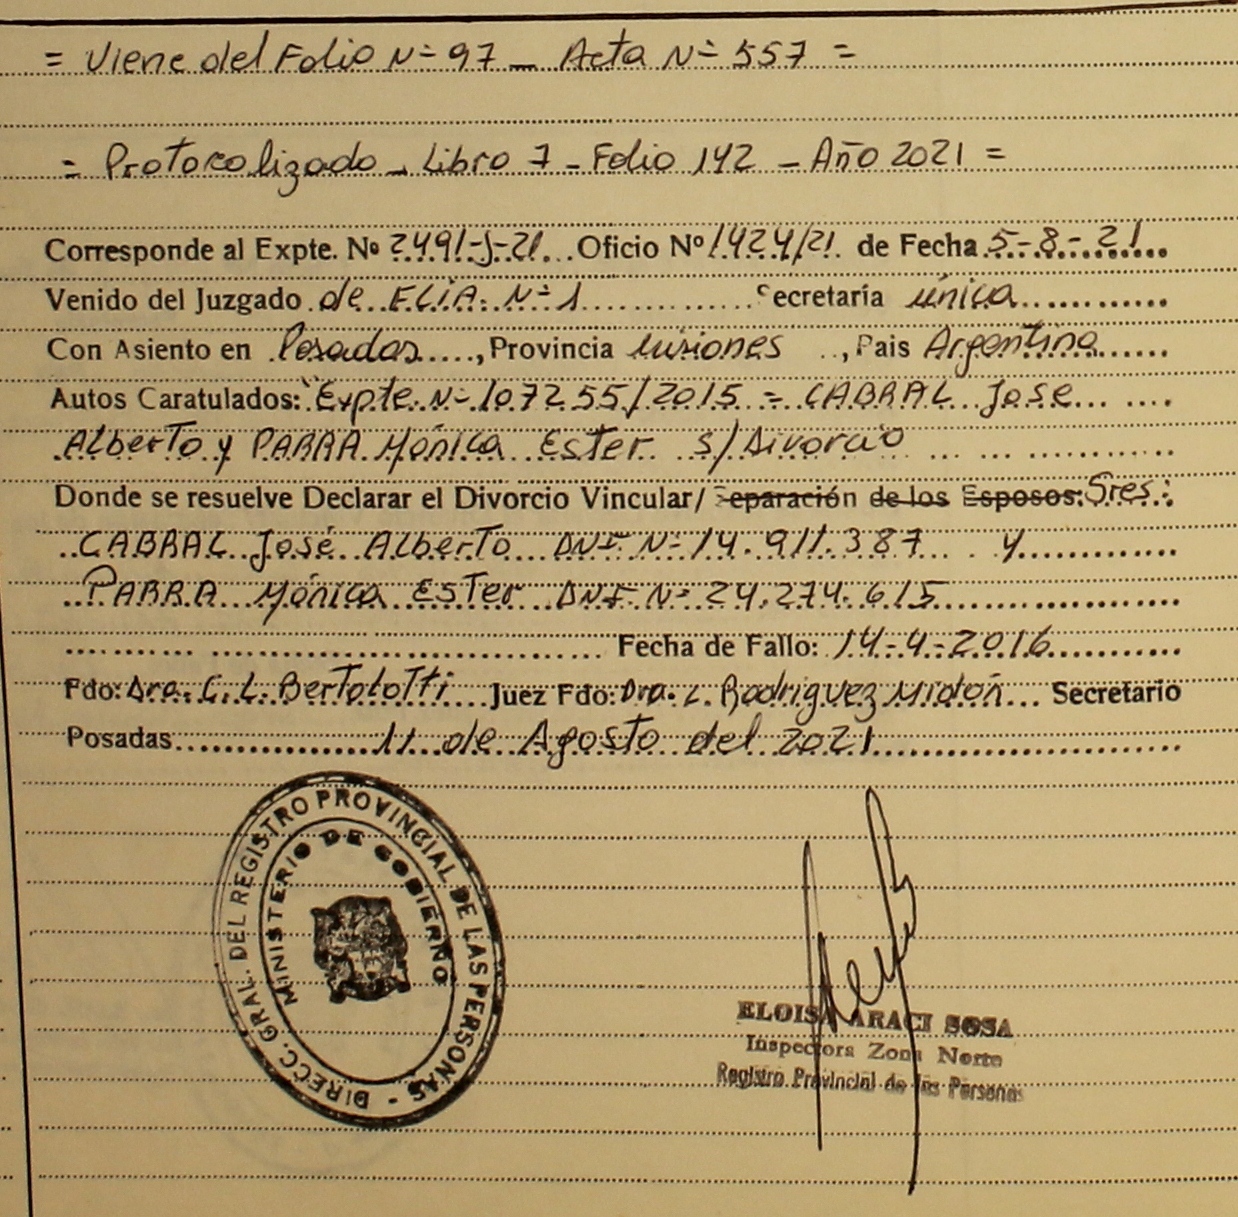 = Viene del Folio Nº 97 - Acta Nº 557 =
= Protocolizado - Libro 7 - Folio 142 - Año 2021 =
Corresponde al Expte. Nº 2491-J-21 Oficio Nº 1424/21 de Fecha 5-8-21
Venido del Juzgado de FLIA. Nº 1 Secretaría única
Con Asiento en Posadas, Provincia Misiones, Pais Argentina
Autos Caratulados: "Expte. Nº 107255/2015 = CABRAL José
Alberto y PARRA Mónica Ester s/Divorcio
Donde se resuelve Declarar el Divorcio Vincular/ Separación de los Esposos: Sres:
CABRAL José Alberto DNI Nº 14.911.387 y
PARRA Mónica Ester DNI Nº 24.274.615
Fecha de Fallo: 14-4-2016
Fdo: Dra. C. L. Bertolotti Juez Fdo: Dra. L. Rodriguez Midón Secretario
Posadas 11 de Agosto del 2021
DIRECC. GRAL. DEL REGISTRO PROVINCIAL DE LAS PERSONAS -
MINISTERIO DE GOBIERNO
ELOISA ARACI SOSA
Inspectora Zona Norte
Registro Provincial de las Personas